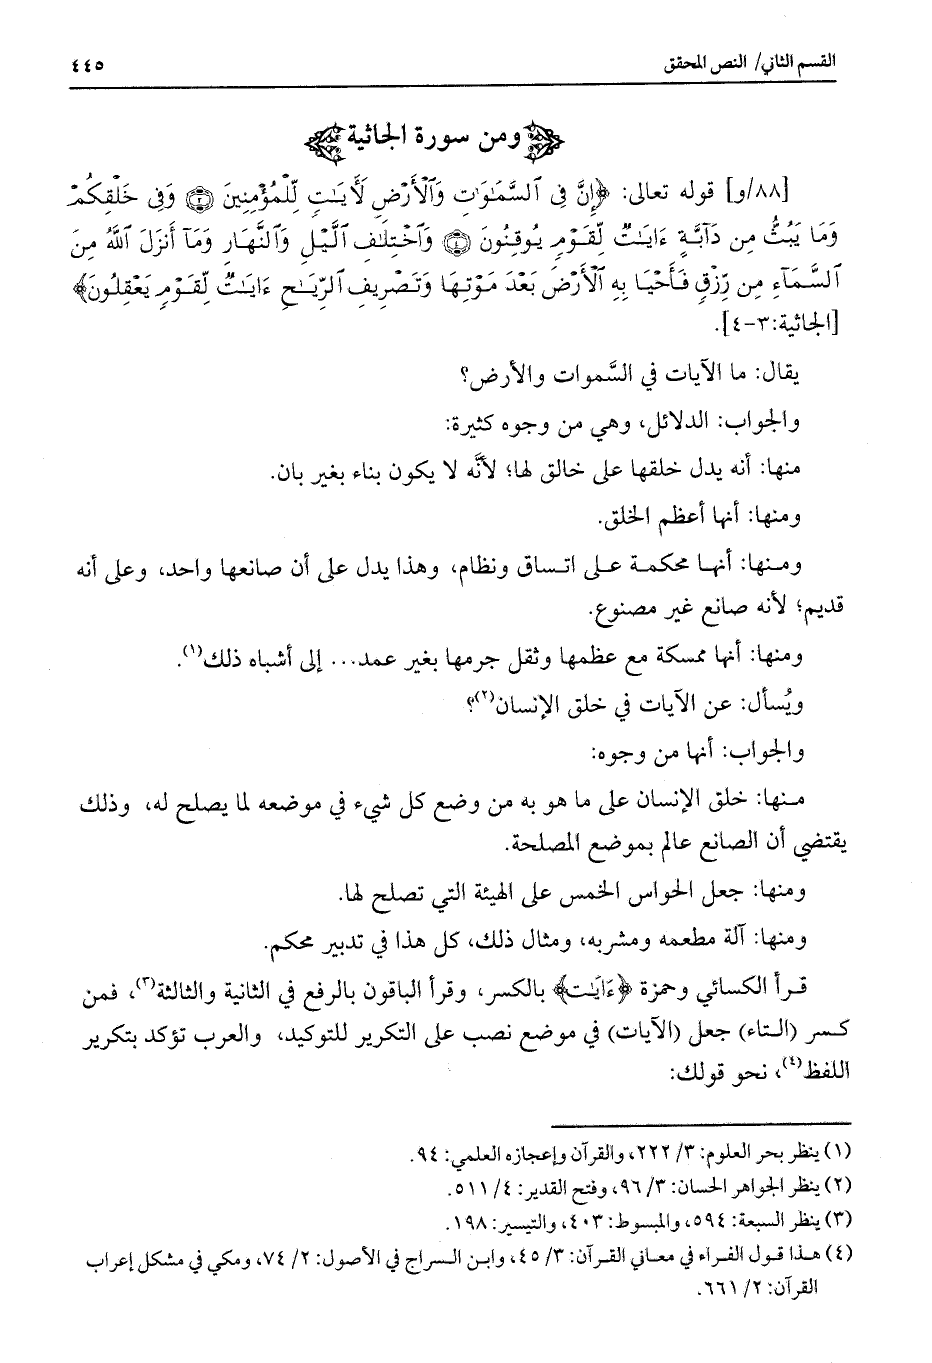 القسم الثاني/ النص المحقق ٤٤٥
ومن سورة الجاثية
[٨٨/و] قوله تعالى: ﴿إِنَّ فِى ٱلسَّمَٰوَٰتِ وَٱلْأَرْضِ لَأٓيَٰتٍ لِّلْمُؤْمِنِينَ ۝٣ وَفِى خَلْقِكُمْ
وَمَا يَبُثُّ مِن دَآبَّةٍ ءَايَٰتٌ لِّقَوْمٍ يُوقِنُونَ ۝٤ وَٱخْتِلَٰفِ ٱلَّيْلِ وَٱلنَّهَارِ وَمَآ أَنزَلَ ٱللَّهُ مِنَ
ٱلسَّمَآءِ مِن رِّزْقٍ فَأَحْيَا بِهِ ٱلْأَرْضَ بَعْدَ مَوْتِهَا وَتَصْرِيفِ ٱلرِّيَٰحِ ءَايَٰتٌ لِّقَوْمٍ يَعْقِلُونَ﴾
[الجاثية:٣-٤].
يقال: ما الآيات في السَّموات والأرض؟
والجواب: الدلائل، وهي من وجوه كثيرة:
منها: أنه يدل خلقها على خالق لها؛ لأنَّه لا يكون بناء بغير بان.
ومنها: أنها أعظم الخلق.
ومنها: أنها محكمة على اتساق ونظام، وهذا يدل على أن صانعها واحد، وعلى أنه
قديم؛ لأنه صانع غير مصنوع.
ومنها: أنها ممسكة مع عظمها وثقل جرمها بغير عمد... إلى أشباه ذلك(١).
ويُسأل: عن الآيات في خلق الإنسان(٢)؟
والجواب: أنها من وجوه:
منها: خلق الإنسان على ما هو به من وضع كل شيء في موضعه لما يصلح له، وذلك
يقتضي أن الصانع عالم بموضع المصلحة.
ومنها: جعل الحواس الخمس على الهيئة التي تصلح لها.
ومنها: آلة مطعمه ومشربه، ومثال ذلك، كل هذا في تدبير محكم.
قرأ الكسائي وحمزة ﴿ءَايَٰتٍ﴾ بالكسر، وقرأ الباقون بالرفع في الثانية والثالثة(٣)، فمن
كسر (التاء) جعل (الآيات) في موضع نصب على التكرير للتوكيد، والعرب تؤكد بتكرير
اللفظ(٤)، نحو قولك:
(١) ينظر بحر العلوم: ٣/ ٢٢٢، والقرآن وإعجازه العلمي: ٩٤.
(٢) ينظر الجواهر الحسان: ٣/ ٩٦، وفتح القدير: ٤/ ٥١١.
(٣) ينظر السبعة: ٥٩٤، والمبسوط: ٤٠٣، والتيسير: ١٩٨.
(٤) هذا قول الفراء في معاني القرآن: ٣/ ٤٥، وابن السراج في الأصول: ٢/ ٧٤، ومكي في مشكل إعراب
القرآن: ٢/ ٦٦١.